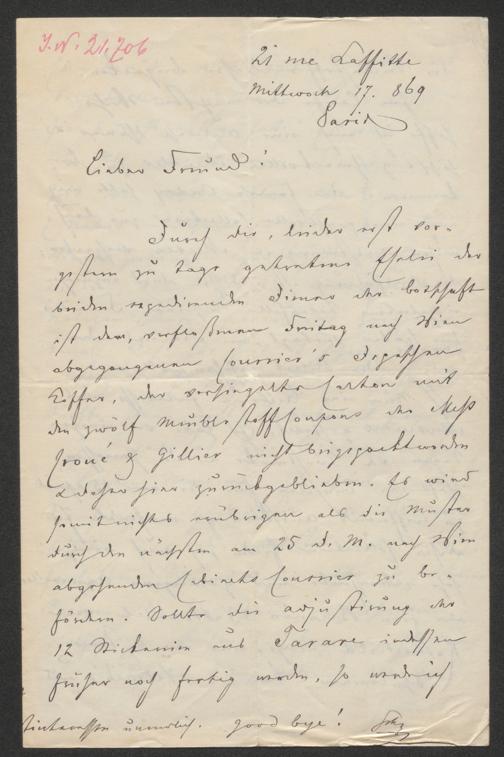 J. N. 21.706
21 rue Laffitte
Mittwoch 17. 869
Paris
Lieber Freund!
Durch die, leider erst vor-
gestern zu Tage getretene Eselei der
beiden expedirenden Diener der Botschaft
ist dem, verflossenen Freitag nach Wien
abgegangenen Courrier's Depeschen
Koffer, der versiegelte Carton mit
den zwölf Meublestoff Coupons der Mess
& Gillier nicht beigepackt worden
& daher hier zurückgeblieben. Es wird
somit nichts erübrigen als die Muster
durch den nächsten am 25 d. M. nach Wien
abgehenden Cabinets Courrier zu be-
fördern. Sollte die Adjustirung der
12 Stickereien aus Tarare indessen
früher noch fertig werden, so werde ich
good bye!